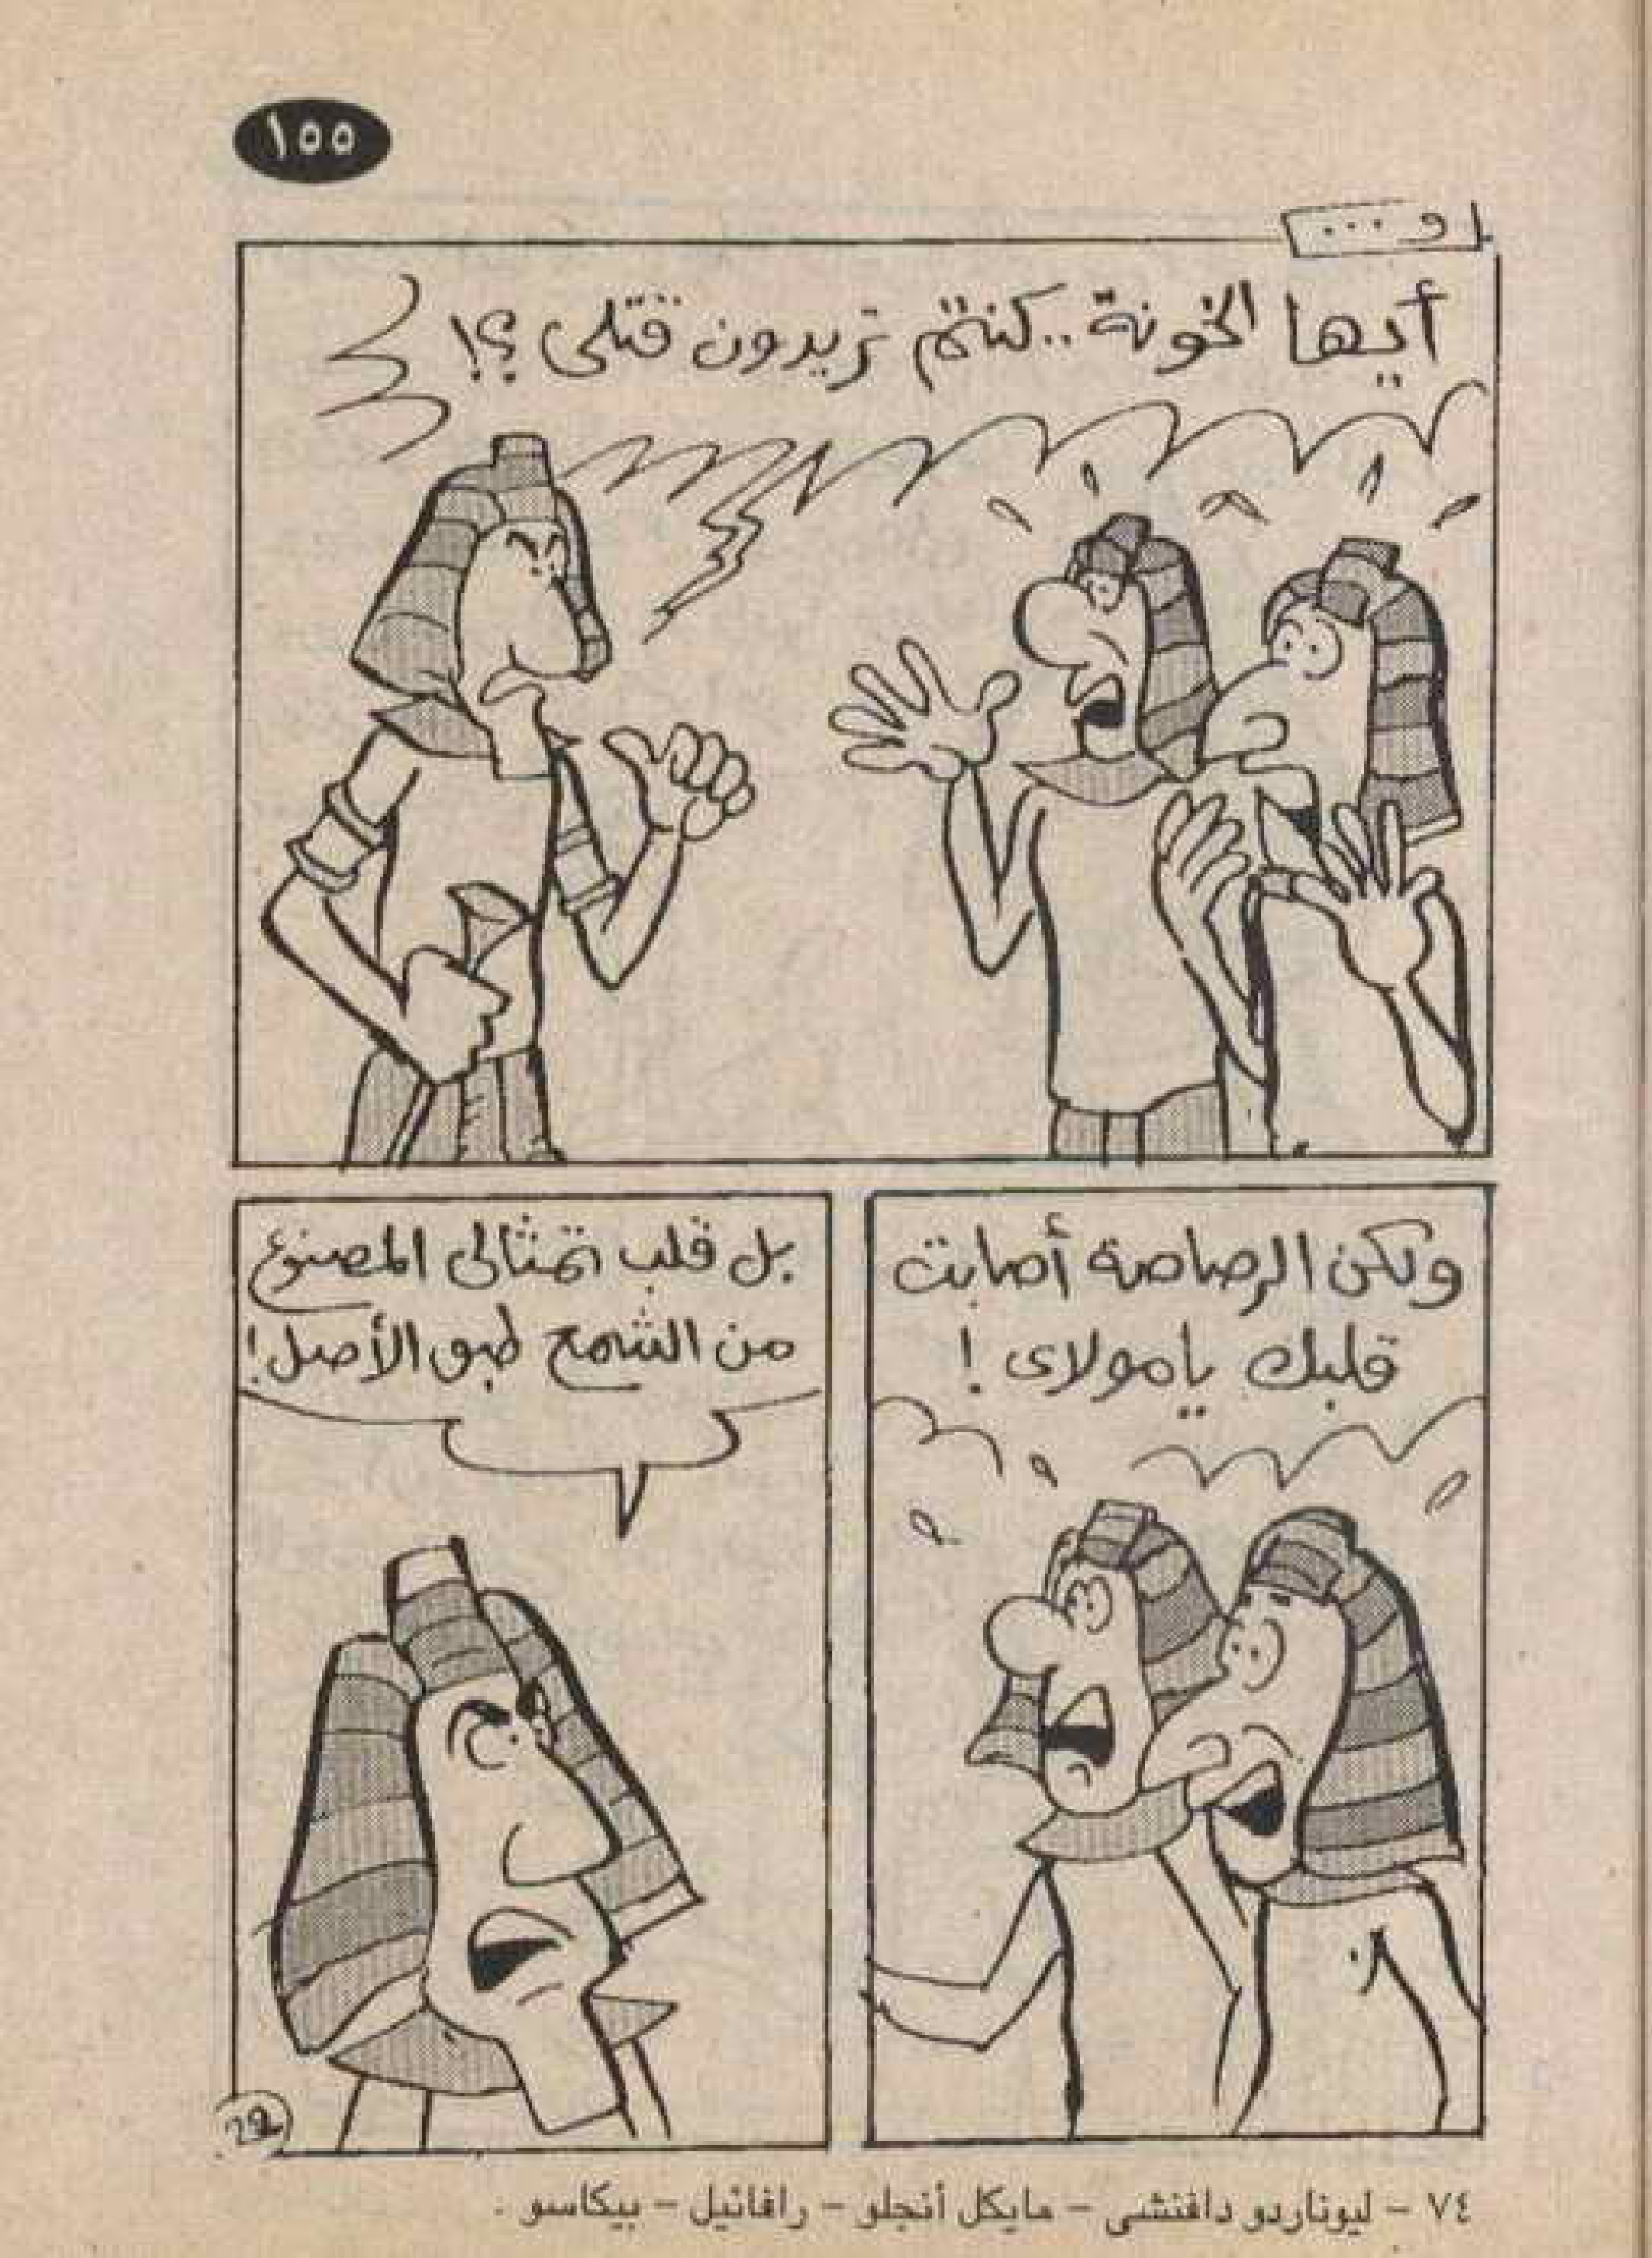 ١٥٥
و ...
أيها الخونة .. كنتم تريدون قتلى ؟!
ولكن الرصاصة أصابت
قلبك يا مولاى !
بل قلب تمثالى المصنوع
من الشمع طبق الأصل !
٧٤ - ليوناردو دافنشى - مايكل أنجلو - رافائيل - بيكاسو .